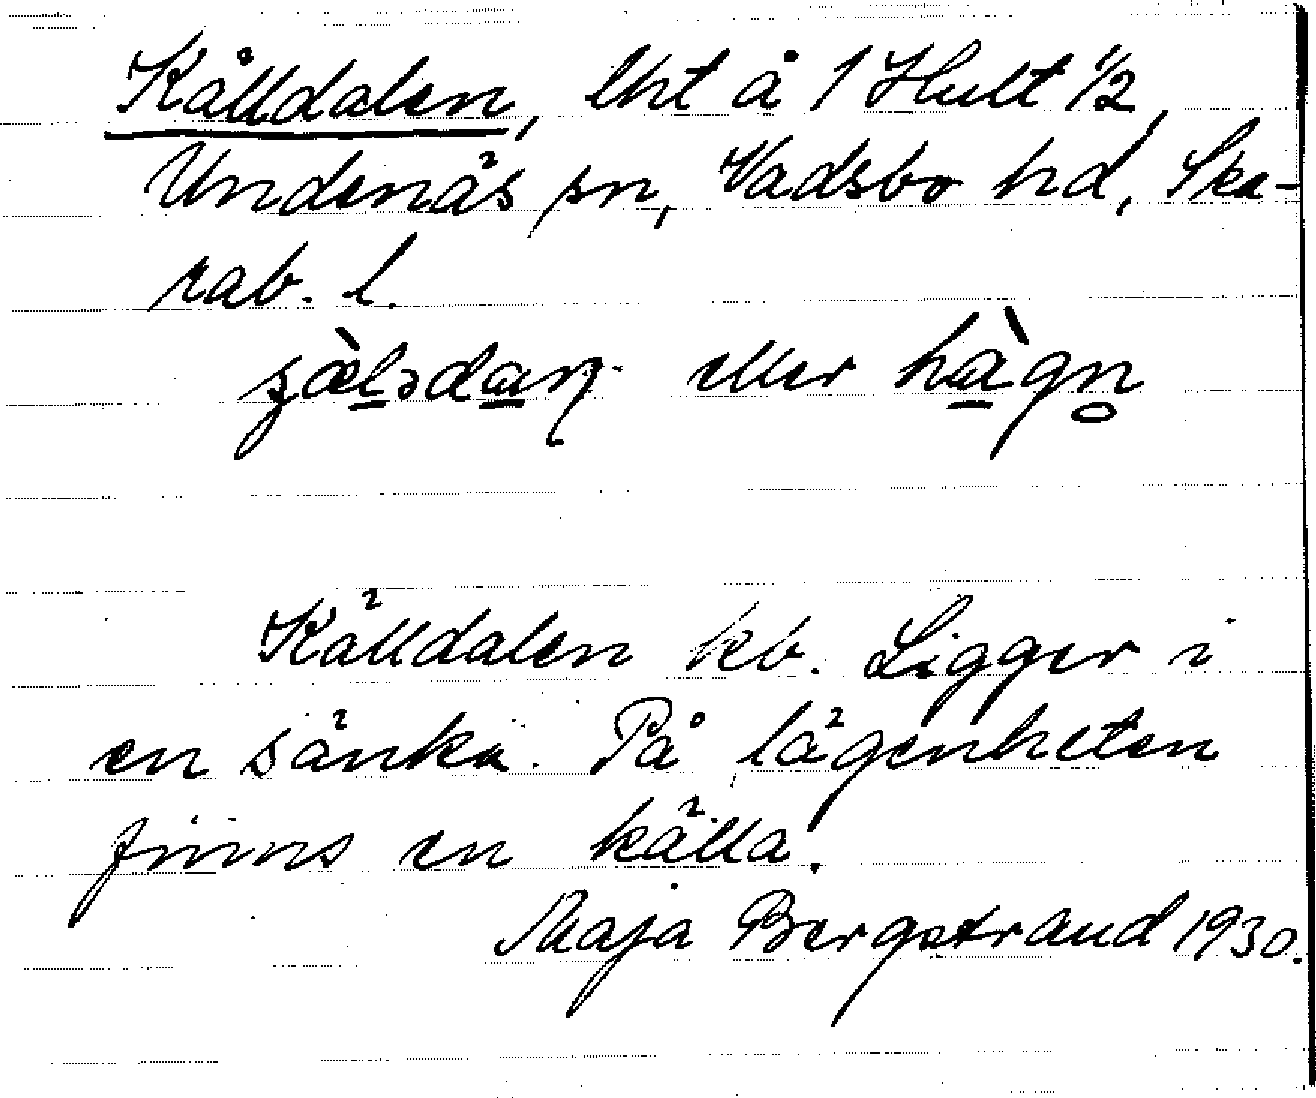 Källdalen, lht å 1 Hult 1/2,
Undenäs sn, Vadsbo hd, Ska-
rab. l.
eller hàgn̥
Källdalen kb. Ligger i
en sänka. På lägenheten
finns en källa.
Maja Bergstrand 1930.